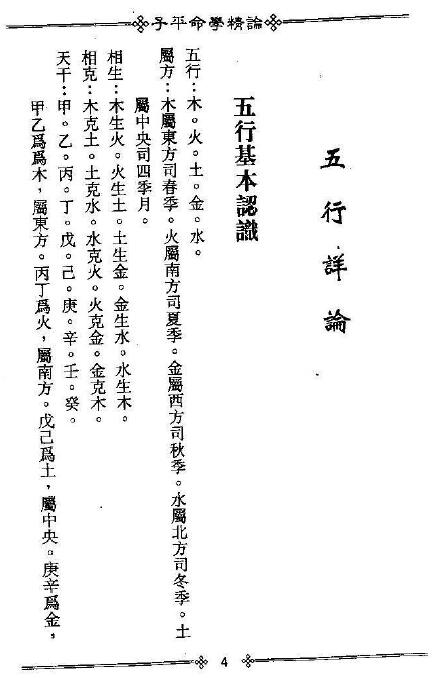 子平命學精論
五行詳論
五行基本認識
五行：木。火。土。金。水。
屬方：木屬東方司春季。火屬南方司夏季。金屬西方司秋季。水屬北方司冬季。土
屬中央司四季月。
相生：木生火。火生土。土生金。金生水。水生木。
相克：木克土。土克水。水克火。火克金。金克木。
天干：甲。乙。丙。丁。戊。己。庚。辛。壬。癸。
甲乙爲爲木，屬東方。丙丁爲火，屬南方。戊己爲土，屬中央。庚辛爲金，
4